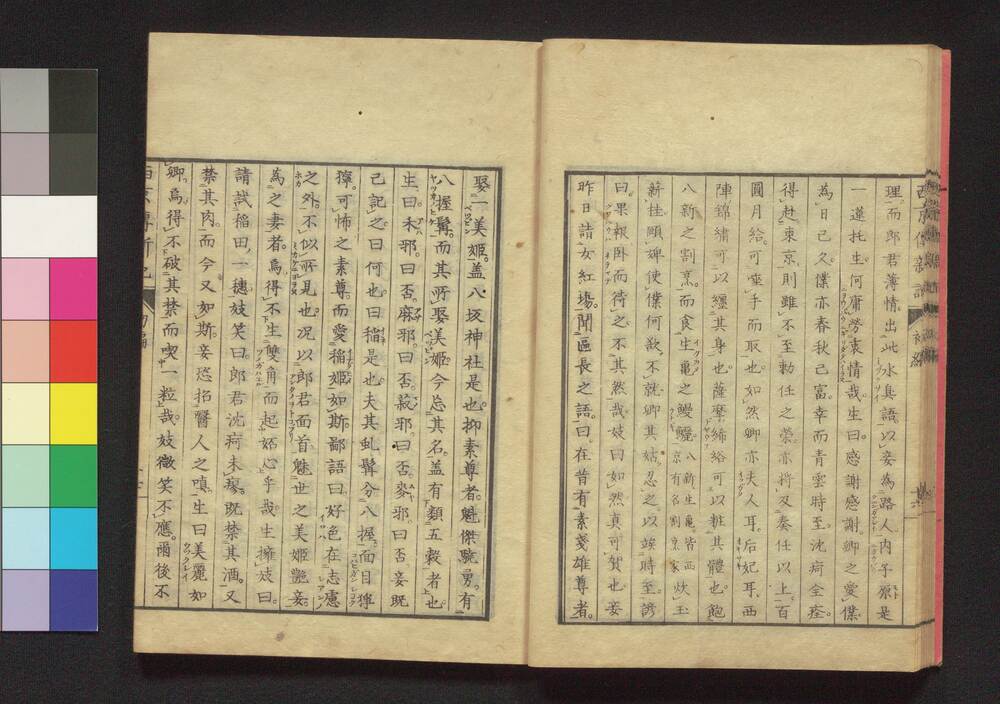 理。而郎君薄情出此水臭語。以妾為路人内子原是
一蓮托生。何庸勞衷情哉。生曰。感謝感謝。卿之愛僕
為日已久。僕亦春秋已富。幸而青雲時至。沈痾全痊。
得赴東京。則雖不至勅任之榮。亦將及奏任以上。百
圓月給。可唾手而取也。如然卿亦夫人耳。后妃耳。西
陣錦繡可以纏其身也。薩摩絺綌可以粧其體也。飽
八新之割烹。而食生亀之鰻鱺。八新生亀皆西京有名割烹家炊玉
薪桂頤碑使僕何欲不就。卿其姑忍之。以竢時至。諺
曰。果報臥而待之。不其然哉。妓曰。如然真可賀也。妾
昨日請女紅場。聞區長之語。曰。在昔有素戔雄尊者。
娶一美姬。盖八坂神社是也。抑素尊者。魁傑驍男。有
八握髯。而其所娶美姬今忘其名。盖有類五穀者也。
生曰。禾邪。曰否。麻邪。曰否。菽邪。曰否。麥邪。曰否。妾既
已記之。曰何也。曰稲是也。夫其虬髯分八握。面目獰
獰。可怖之素尊。而愛稲姬。如斯鄙語曰。好色在志慮
之外。不似所見也。况以郎君面首魅世之美姬艷妾。
為之妻者。焉得不生雙角而起妬心乎哉。生擁妓曰。
請試稲田一穗。妓笑曰。郎君沈痾未瘳。既禁其酒。又
禁其肉。而今又如斯。妾恐招醫人之嗔。生曰美麗如
卿。焉得不破其禁而喫一粒哉。妓微笑不應。爾後不